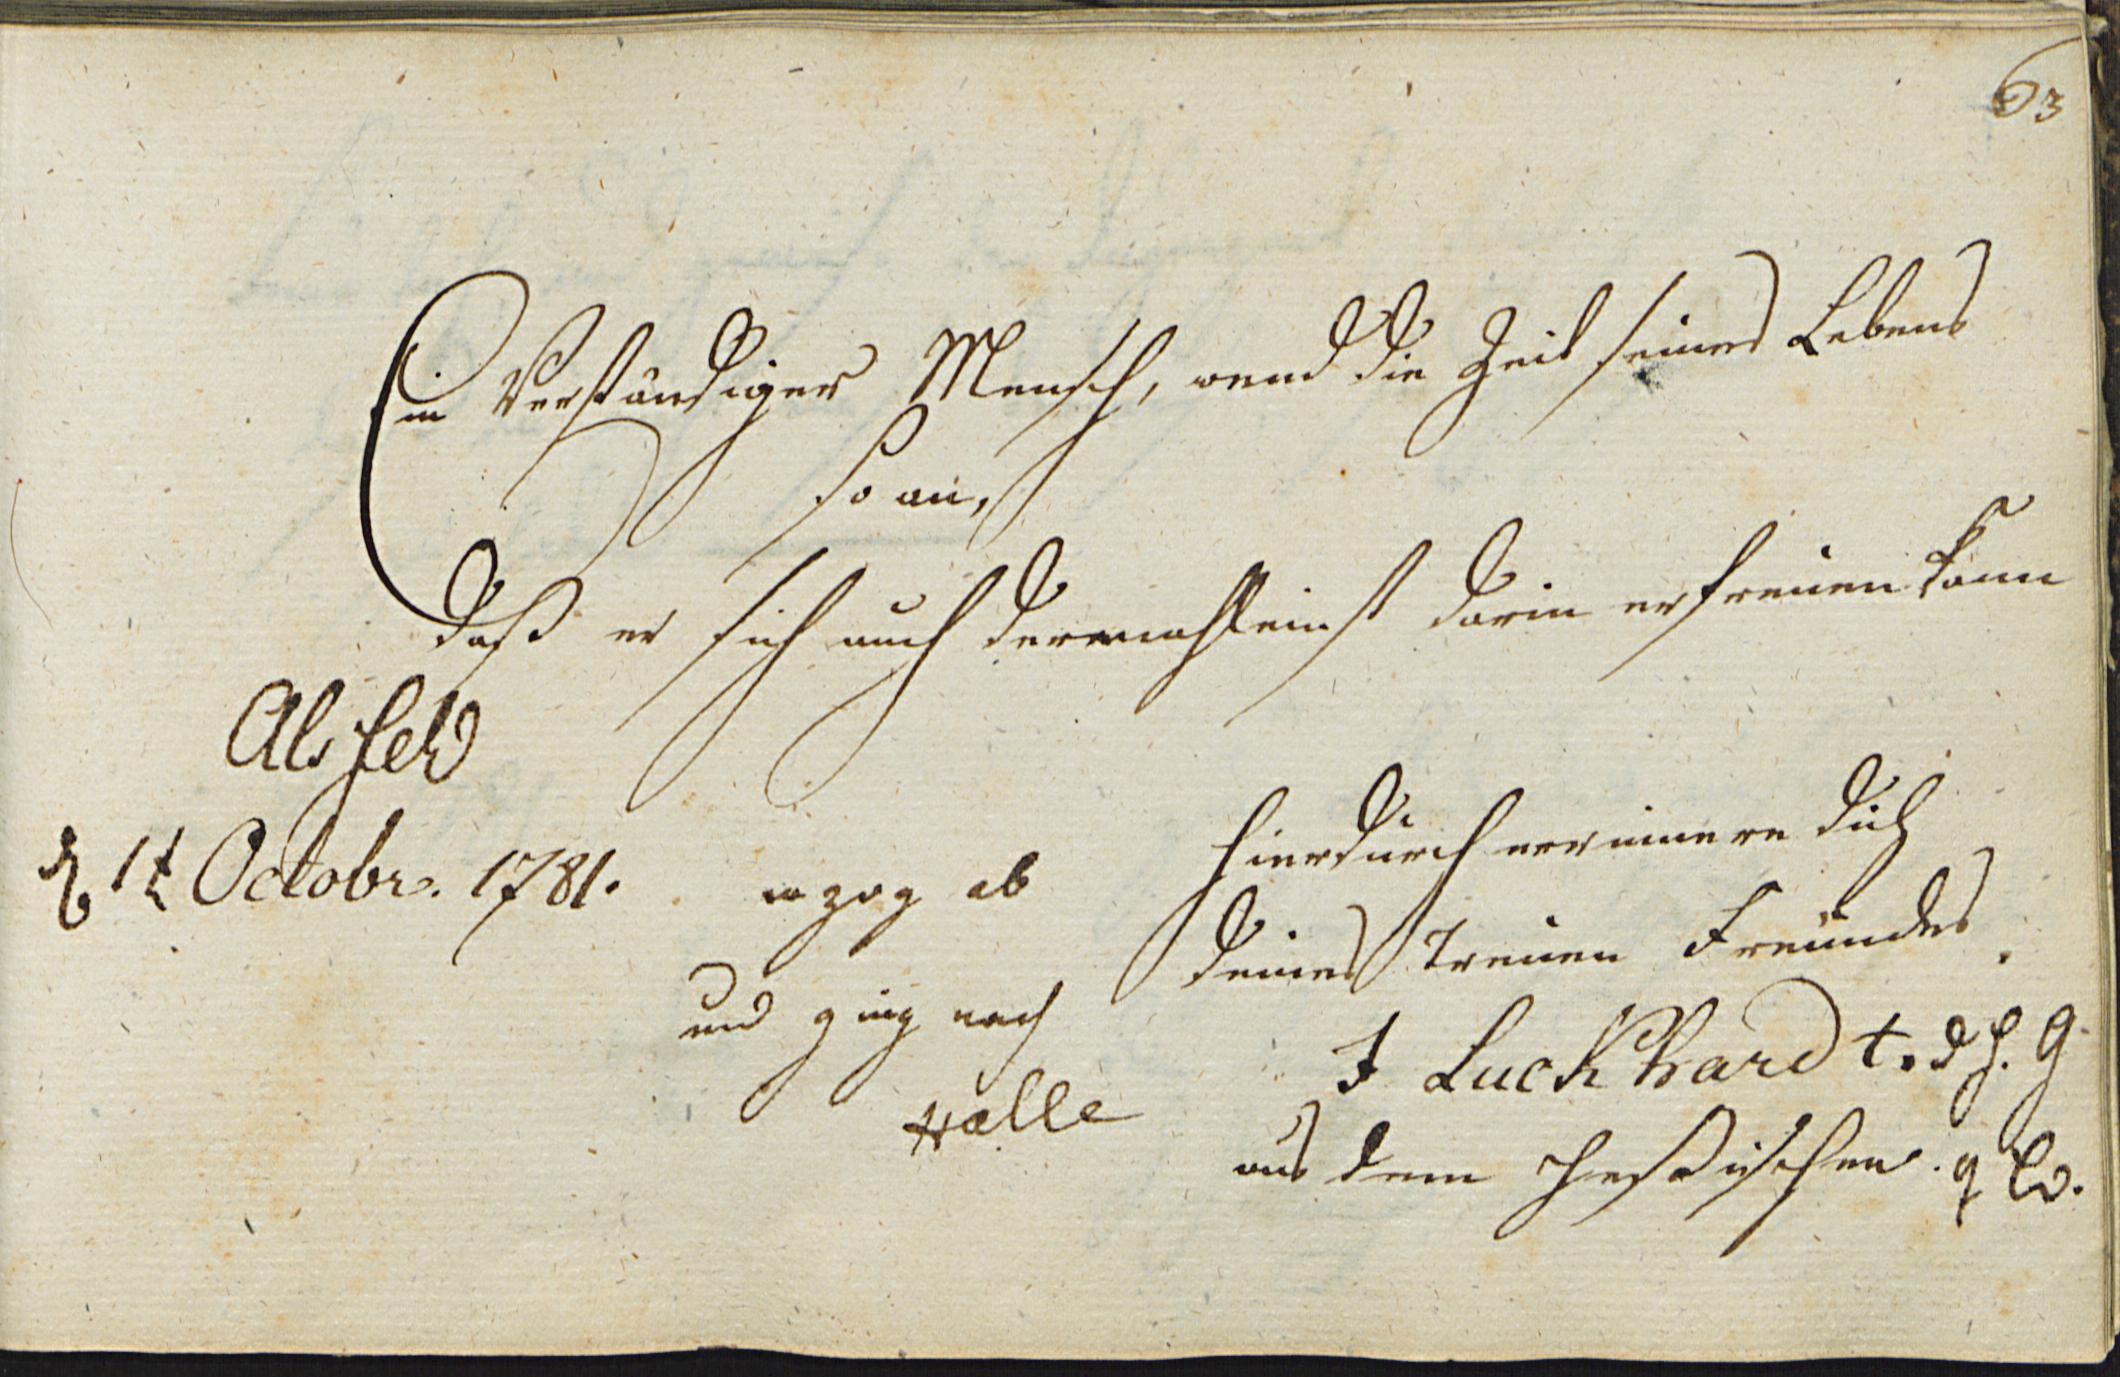 63
Ein Verständiger Mensch, wend die Zeit seines Lebens
so an,
daß er sich auch dermahleinst darin erfreuen kann
Alsfeld
d 1t Octobr. 1781.
er zog ab
und ging nach
Halle
Hierdurch errinnere dich
deines treuen Freundes.
J Luckhardt. d. h. G.
aus dem Heßischen.